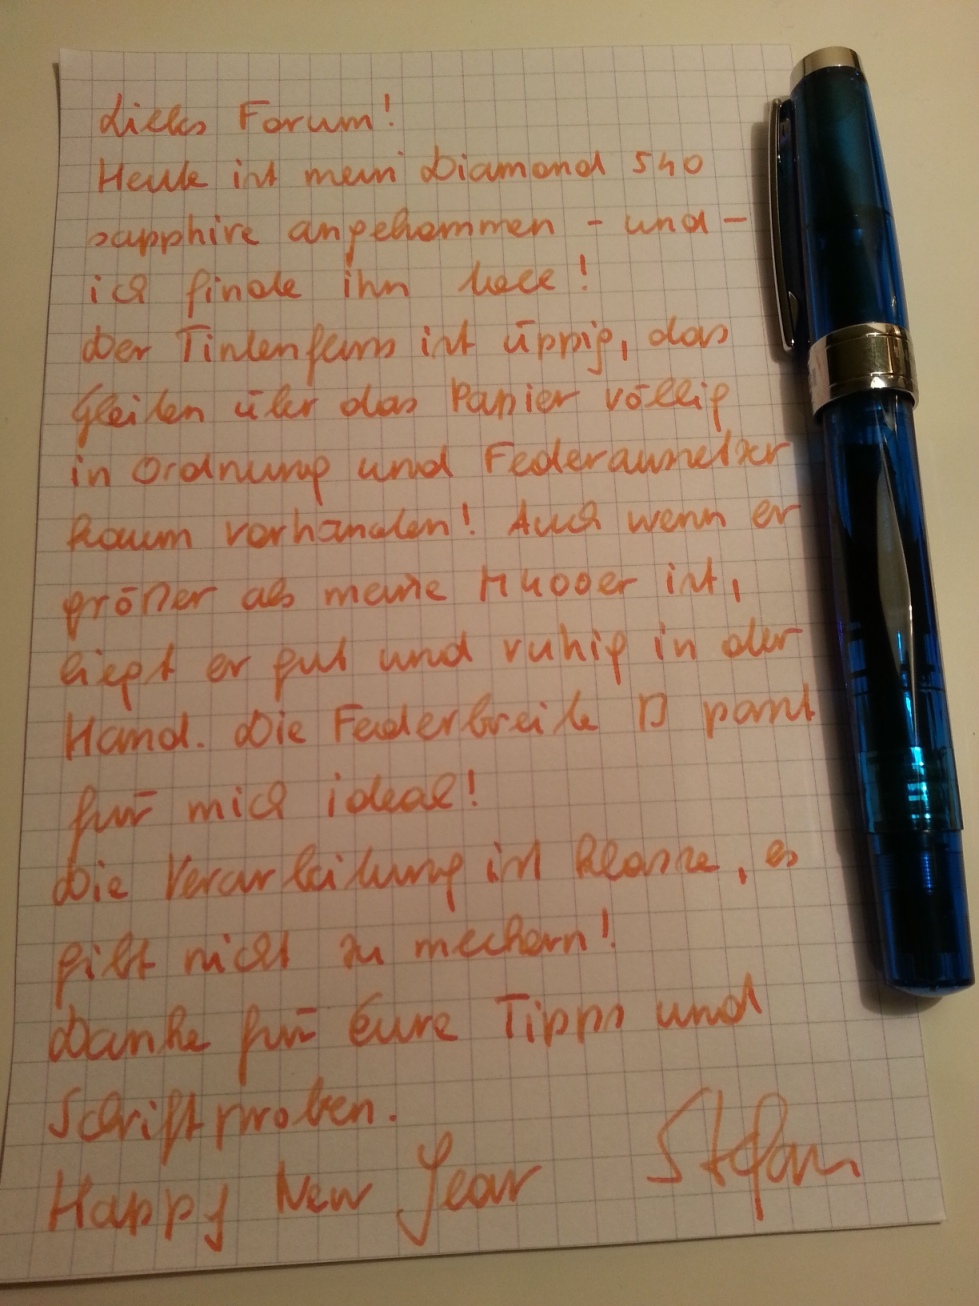 Liebes Forum!
Heute ist mein Diamond 540
sapphire angekommen - und -
ich finde ihn
Der Tintenfluss ist üppig, das
Gleiten über das Papier völlig
in Ordnung und
kaum vorhanden! Auch wenn er
größer als meine ist,
liegt er gut und ruhig in der
Hand. Die Federbreite B passt
für mich ideal!
Die Verarbeitung ist klasse, es
gibt nicht zu meckern!
Danke für Eure Tipps und
Schriftproben.
Happy New Year Stefan